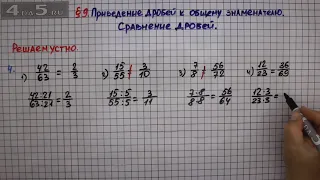 4 5.ru
§9 Приведение дробей к общему знаменателю.
Сравнение дробей.
Решаем устно.
4. 1) 42/63 = 2/3 2) 15/55 ≠ 3/10 3) 7/8 ≠ 56/72 4) 12/23 = 36/69
42:21/63:21 = 2/3 15:5/55:5 = 3/11 7·8/8·8 = 56/64 12·3/23·3 =